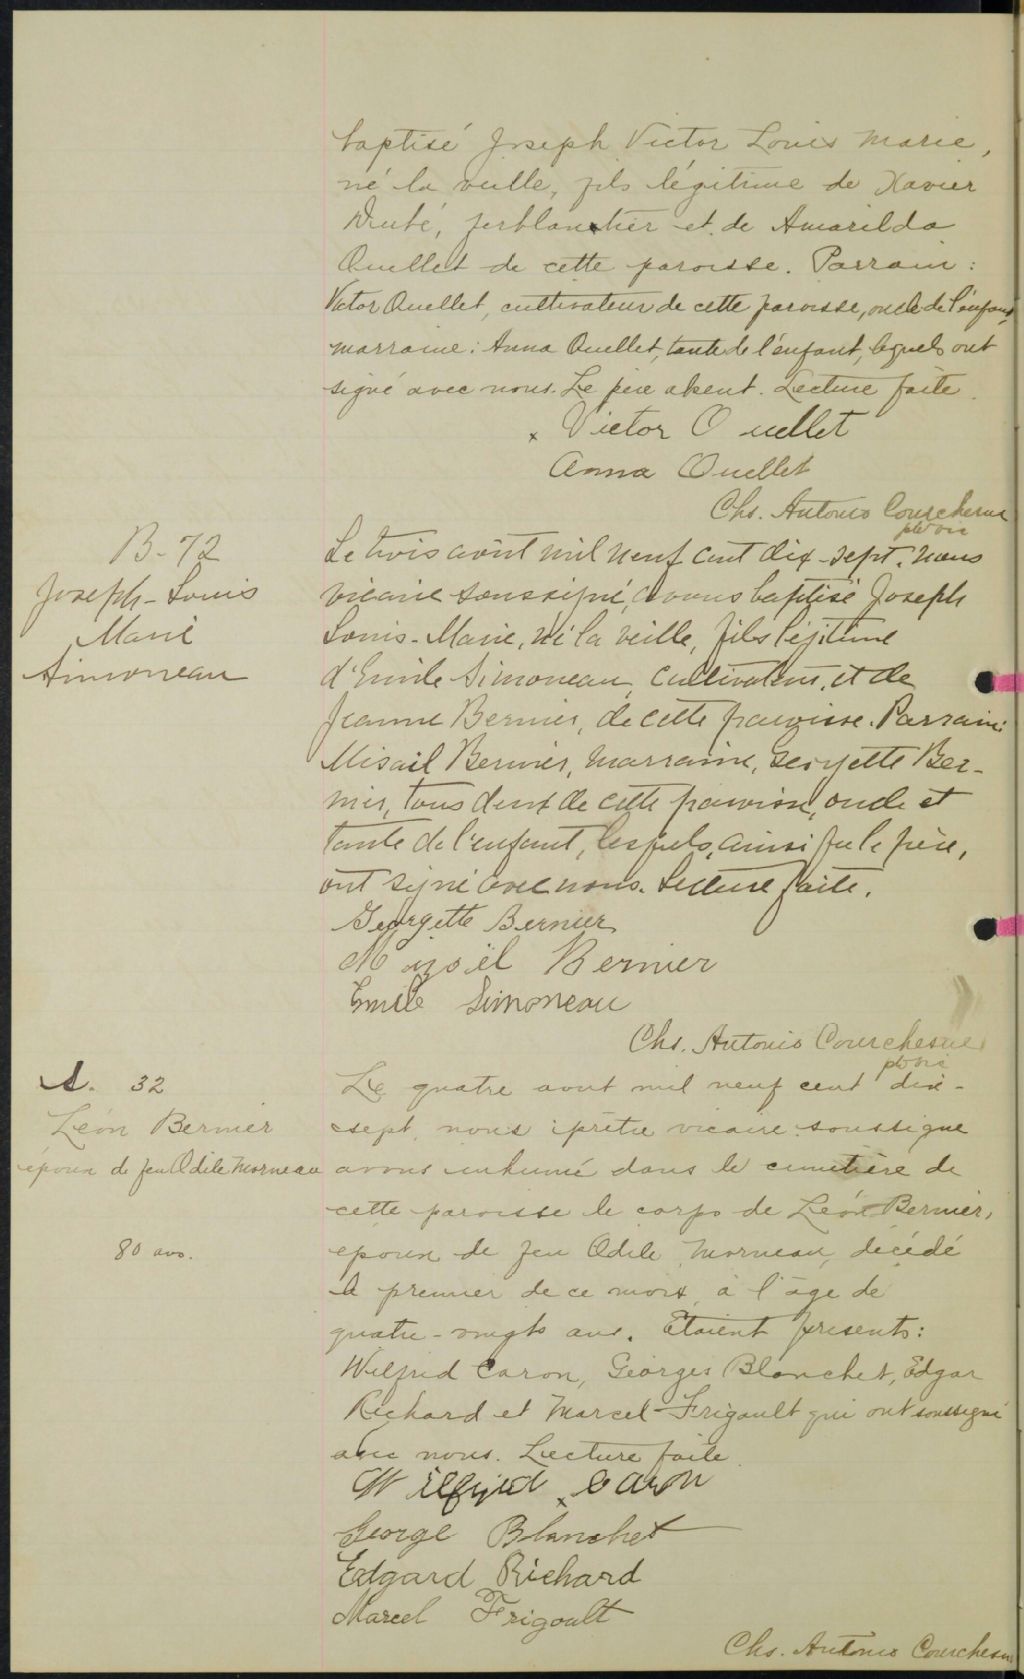 baptisé Joseph Victor Louis Marie,
né la veille, fils légitime de Xavier
Dubé, ferblantier et de Amarilda
Ouellet de cette paroisse. Parrain :
Victor Ouellet, cultivateur de cette paroisse, oncle de l'enfant,
marraine : Anna Ouellet, tante de l'enfant, lesquels ont
signé avec nous. Le père absent. Lecture faite.
x Victor Ouellet
Anna Ouellet
Chs. Antonio Courchesne
ptre vic
B-72
Joseph-Louis
Marie
Simoneau
Le trois août mil neuf cent dix-sept, nous
vicaire soussigné, avons baptisé Joseph
Louis-Marie, né la veille, fils légitime
d'Emile Simoneau, cultivateur, et de
Jeanne Bernier, de cette paroisse. Parrain:
Misaël Bernier, marraine, Georgette Ber-
nier, tous deux de cette paroisse, oncle et
tante de l'enfant, lesquels, ainsi que le père,
ont signé avec nous. Lecture faite.
Georgette Bernier
Mizaël Bernier
Emile Simoneau
Chs. Antonio Courchesne
ptre vic
S. 32
Léon Bernier
époux de feu Odile Morneau
80 ans.
Le quatre aout mil neuf cent dix-
sept, nous prêtre vicaire soussigné
avons inhumé dans le cimetière de
cette paroisse le corps de Léon Bernier,
époux de feu Odile Morneau, décédé
le premier de ce mois à l'âge de
quatre-vingts ans. Etaient présents :
Wilfrid Caron, Georges Blanchet, Edgar
Richard et Marcel Frigault qui ont soussigné
avec nous. Lecture faite.
Wilfrid x Caron
George Blanchet
Edgard Richard
Marcel Frigoult
Chs. Antonio Courchesne